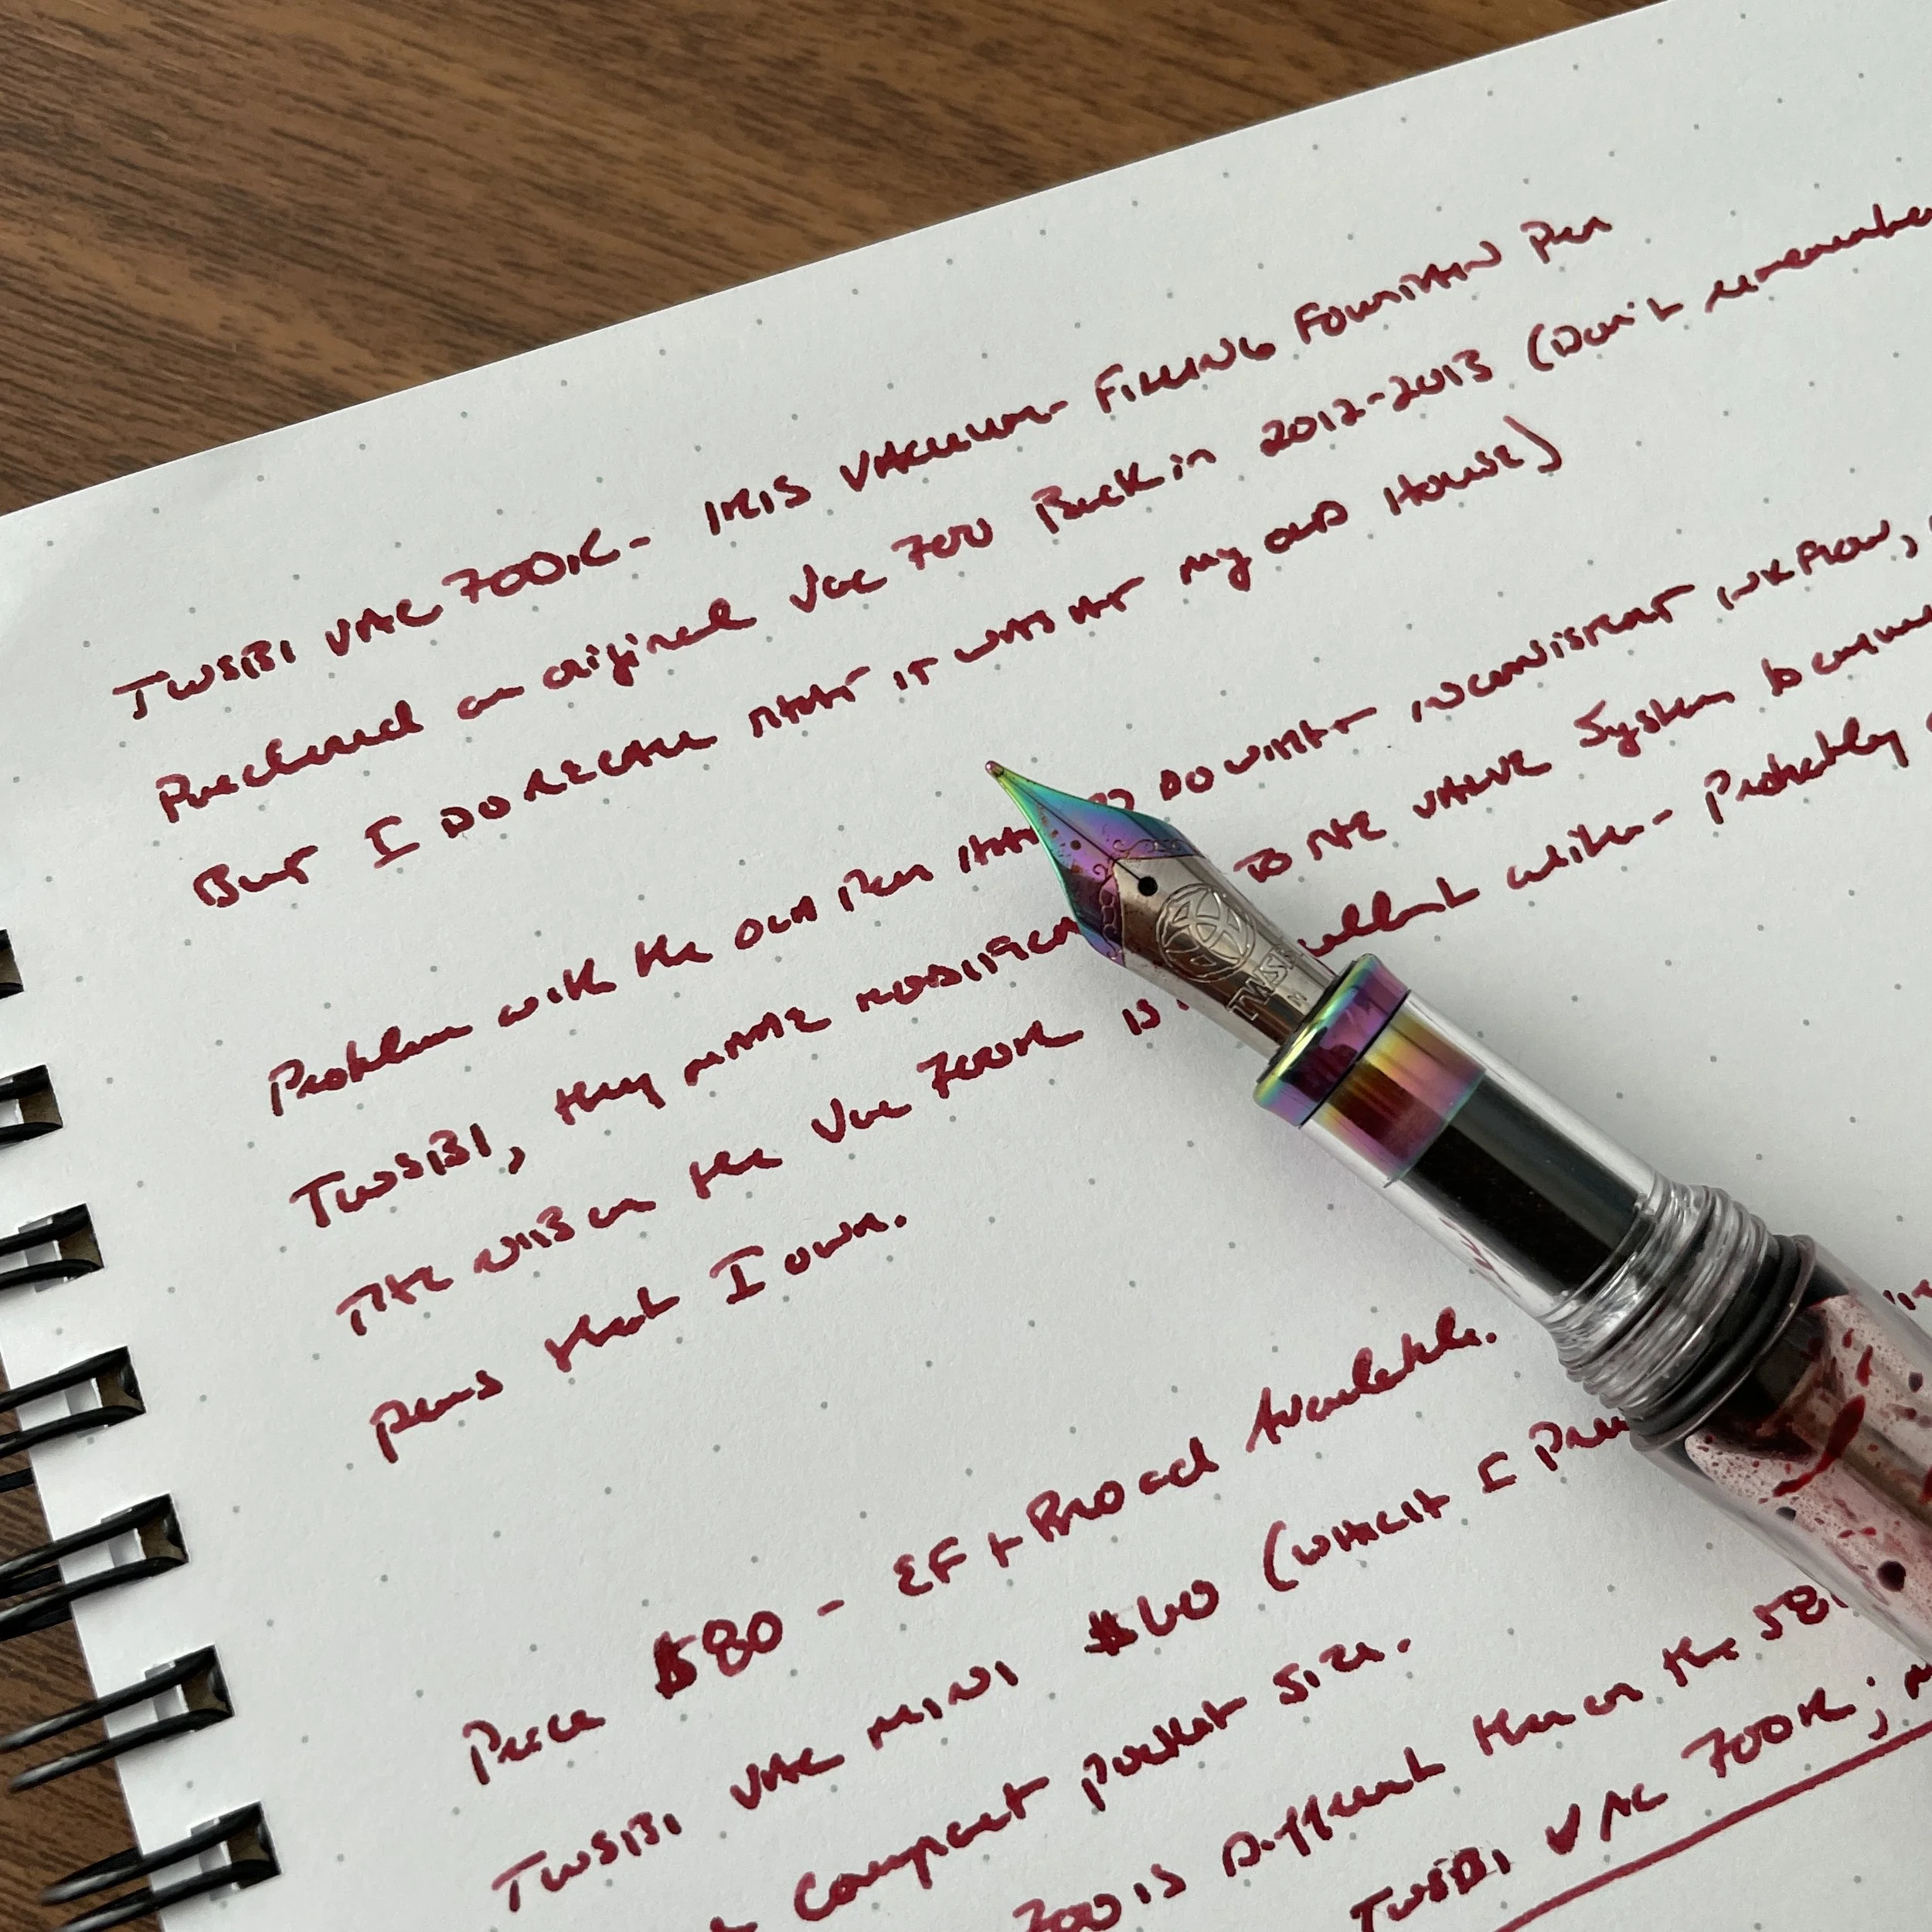 TWSBI VAC 700R - IRIS VACUUM-FILLING FOUNTAIN Pen
Purchased an original Vac 700 Back in 2012-2013 (Don't remember
But I DO RECALL THAT IT WAS AT my OLD House)
Problem with the OLD Pen HAD DO WITH INCONSISTENT INKFLOW,
TWSBI, they MADE TO THE VALVE System
THE NIB on the Vac 700R IS writer - Probably
pens that I own.
Price $80 - EF + BROad Available.
TWSBI VAC MINI $60 (WHICH I
Compact pocket size.
700 IS Different than on the
TWSBI VAC 700R;
TWSBI